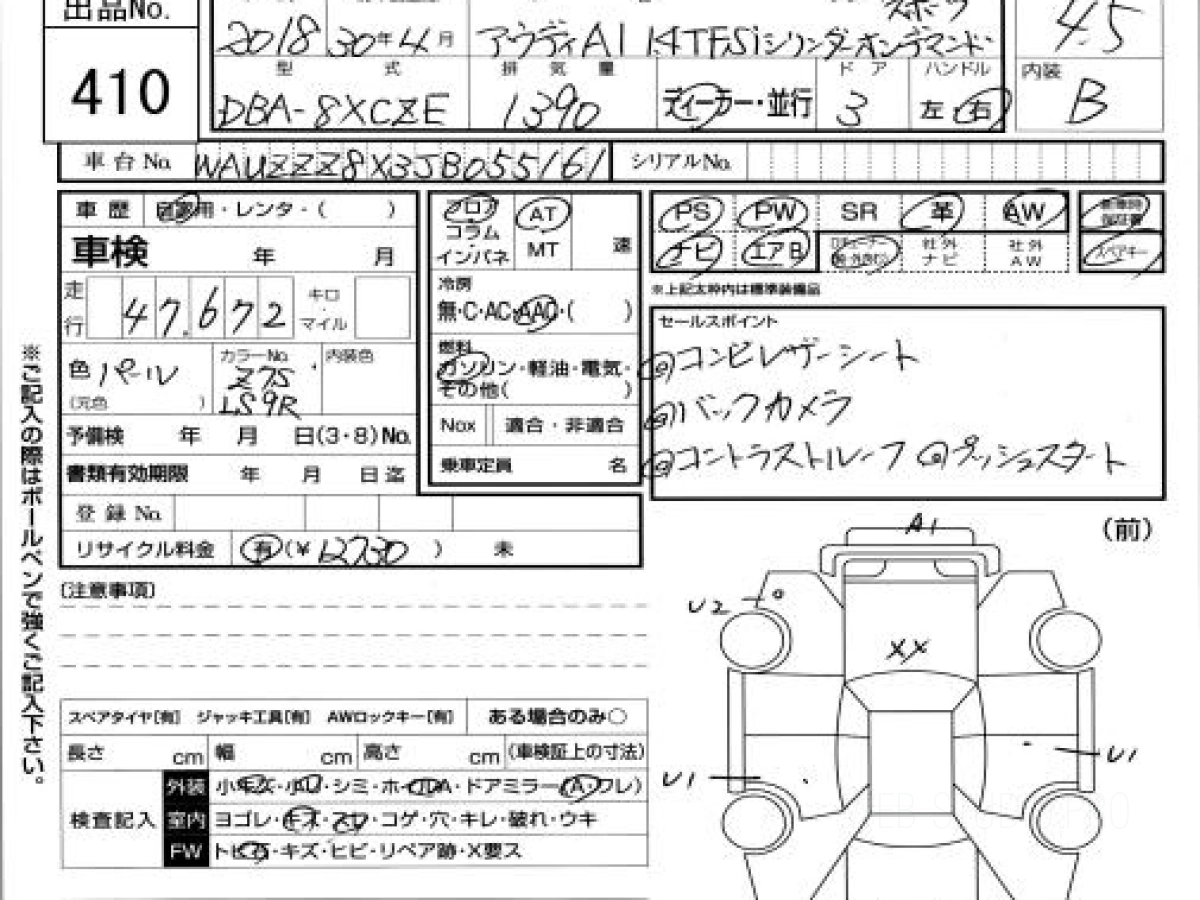 出品No.
410
スポーツ
2018 30年4月 アウディA1 1.4TFSiシリンダーオンデマンド
4.5
型 式 排 気 量 ドア ハンドル
DBA-8XCZE 1390 ディーラー・並行 3 左 右
内装
B
車台No. WAUZZZ8X3JB055161 シリアルNo.
車歴 自家用・レンタ・( )
車検 年 月
走行 47,672 キロ・マイル
色 パール カラーNo. Z7S LS9R 内装色
(元色 )
予備検 年 月 日(3・8)No.
書類有効期限 年 月 日迄
登録No.
リサイクル料金 有(¥ 12730 ) 未
フロア
コラム
インパネ
AT
MT
速
冷房
無・C・AC・AAC・( )
燃料
ガソリン・軽油・電気・
その他( )
Nox 適合・非適合
乗車定員 名
PS PW SR 革 AW
ナビ エアB 社外ナビ 社外AW
保証書
スペアキー
※上記太枠内は標準装備品
セールスポイント
@コンビレザーシート
@バックカメラ
@コントラストルーフ @プッシュスタート
※ご記入の際はボールペンで強くご記入下さい。
[注意事項]
スペアタイヤ[有] ジャッキ工具[有] AWロックキー[有] ある場合のみ○
長さ cm 幅 cm 高さ cm (車検証上の寸法)
検査記入
外装 小キズ・小U・シミ・ホイルA・ドアミラー(A・ワレ)
室内 ヨゴレ・キズ・スレ・コゲ・穴・キレ・破れ・ウキ
FW トビ石・キズ・ヒビ・リペア跡・X要ス
(前)
A1
U2
XX
U1
U1